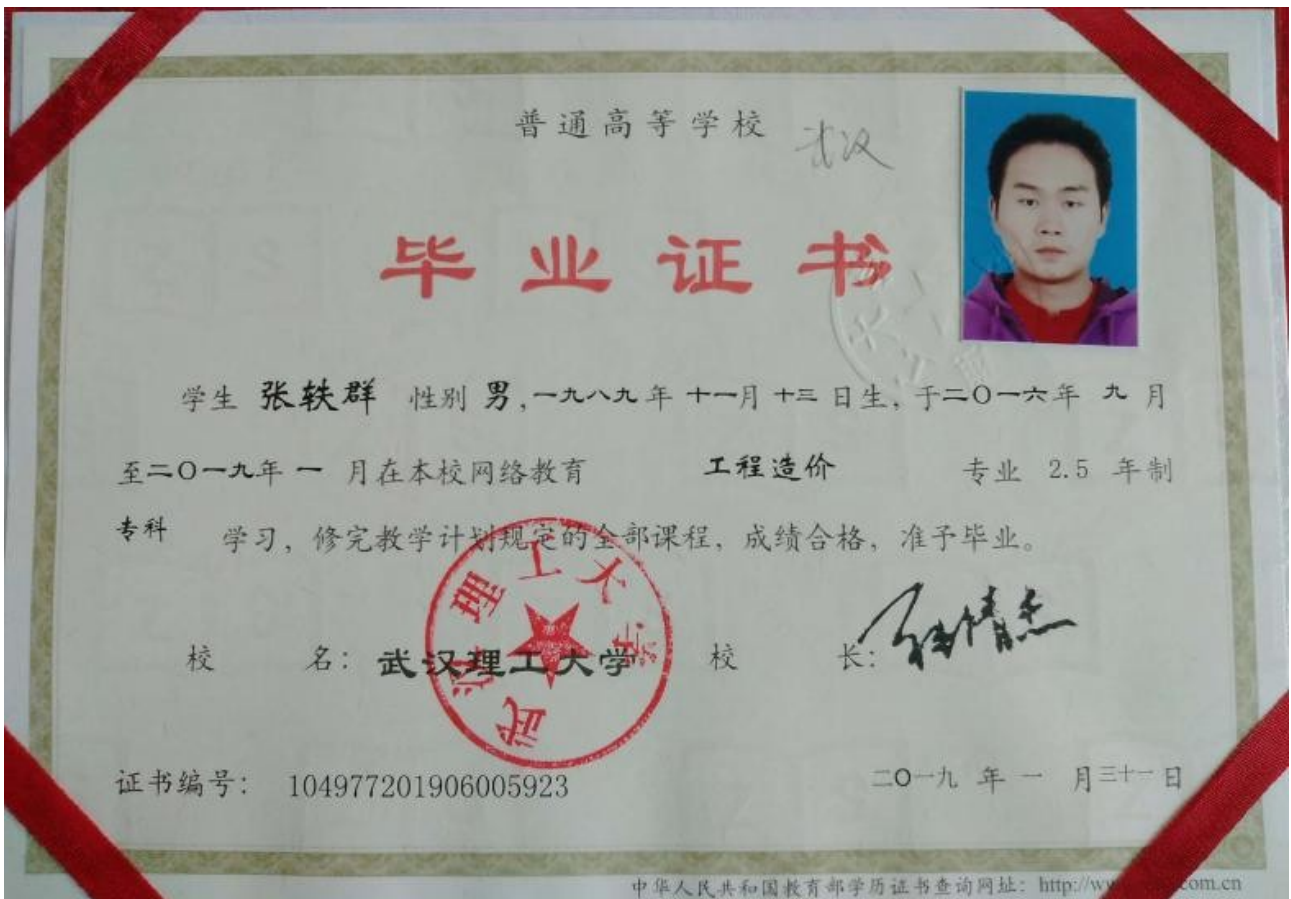 普通高等学校
武汉
毕业证书
学生 张轶群 性别 男,一九八九年 十一月 十三 日生, 于二〇一六年 九 月
至二〇一九年 一 月在本校网络教育 工程造价 专业 2.5 年制
专科 学习, 修完教学计划规定的全部课程, 成绩合格, 准予毕业。
武汉理工大学
校 名: 武汉理工大学 校 长:
证书编号: 104977201906005923 二〇一九 年 一 月三十一日
中华人民共和国教育部学历证书查询网址: http://w com.cn